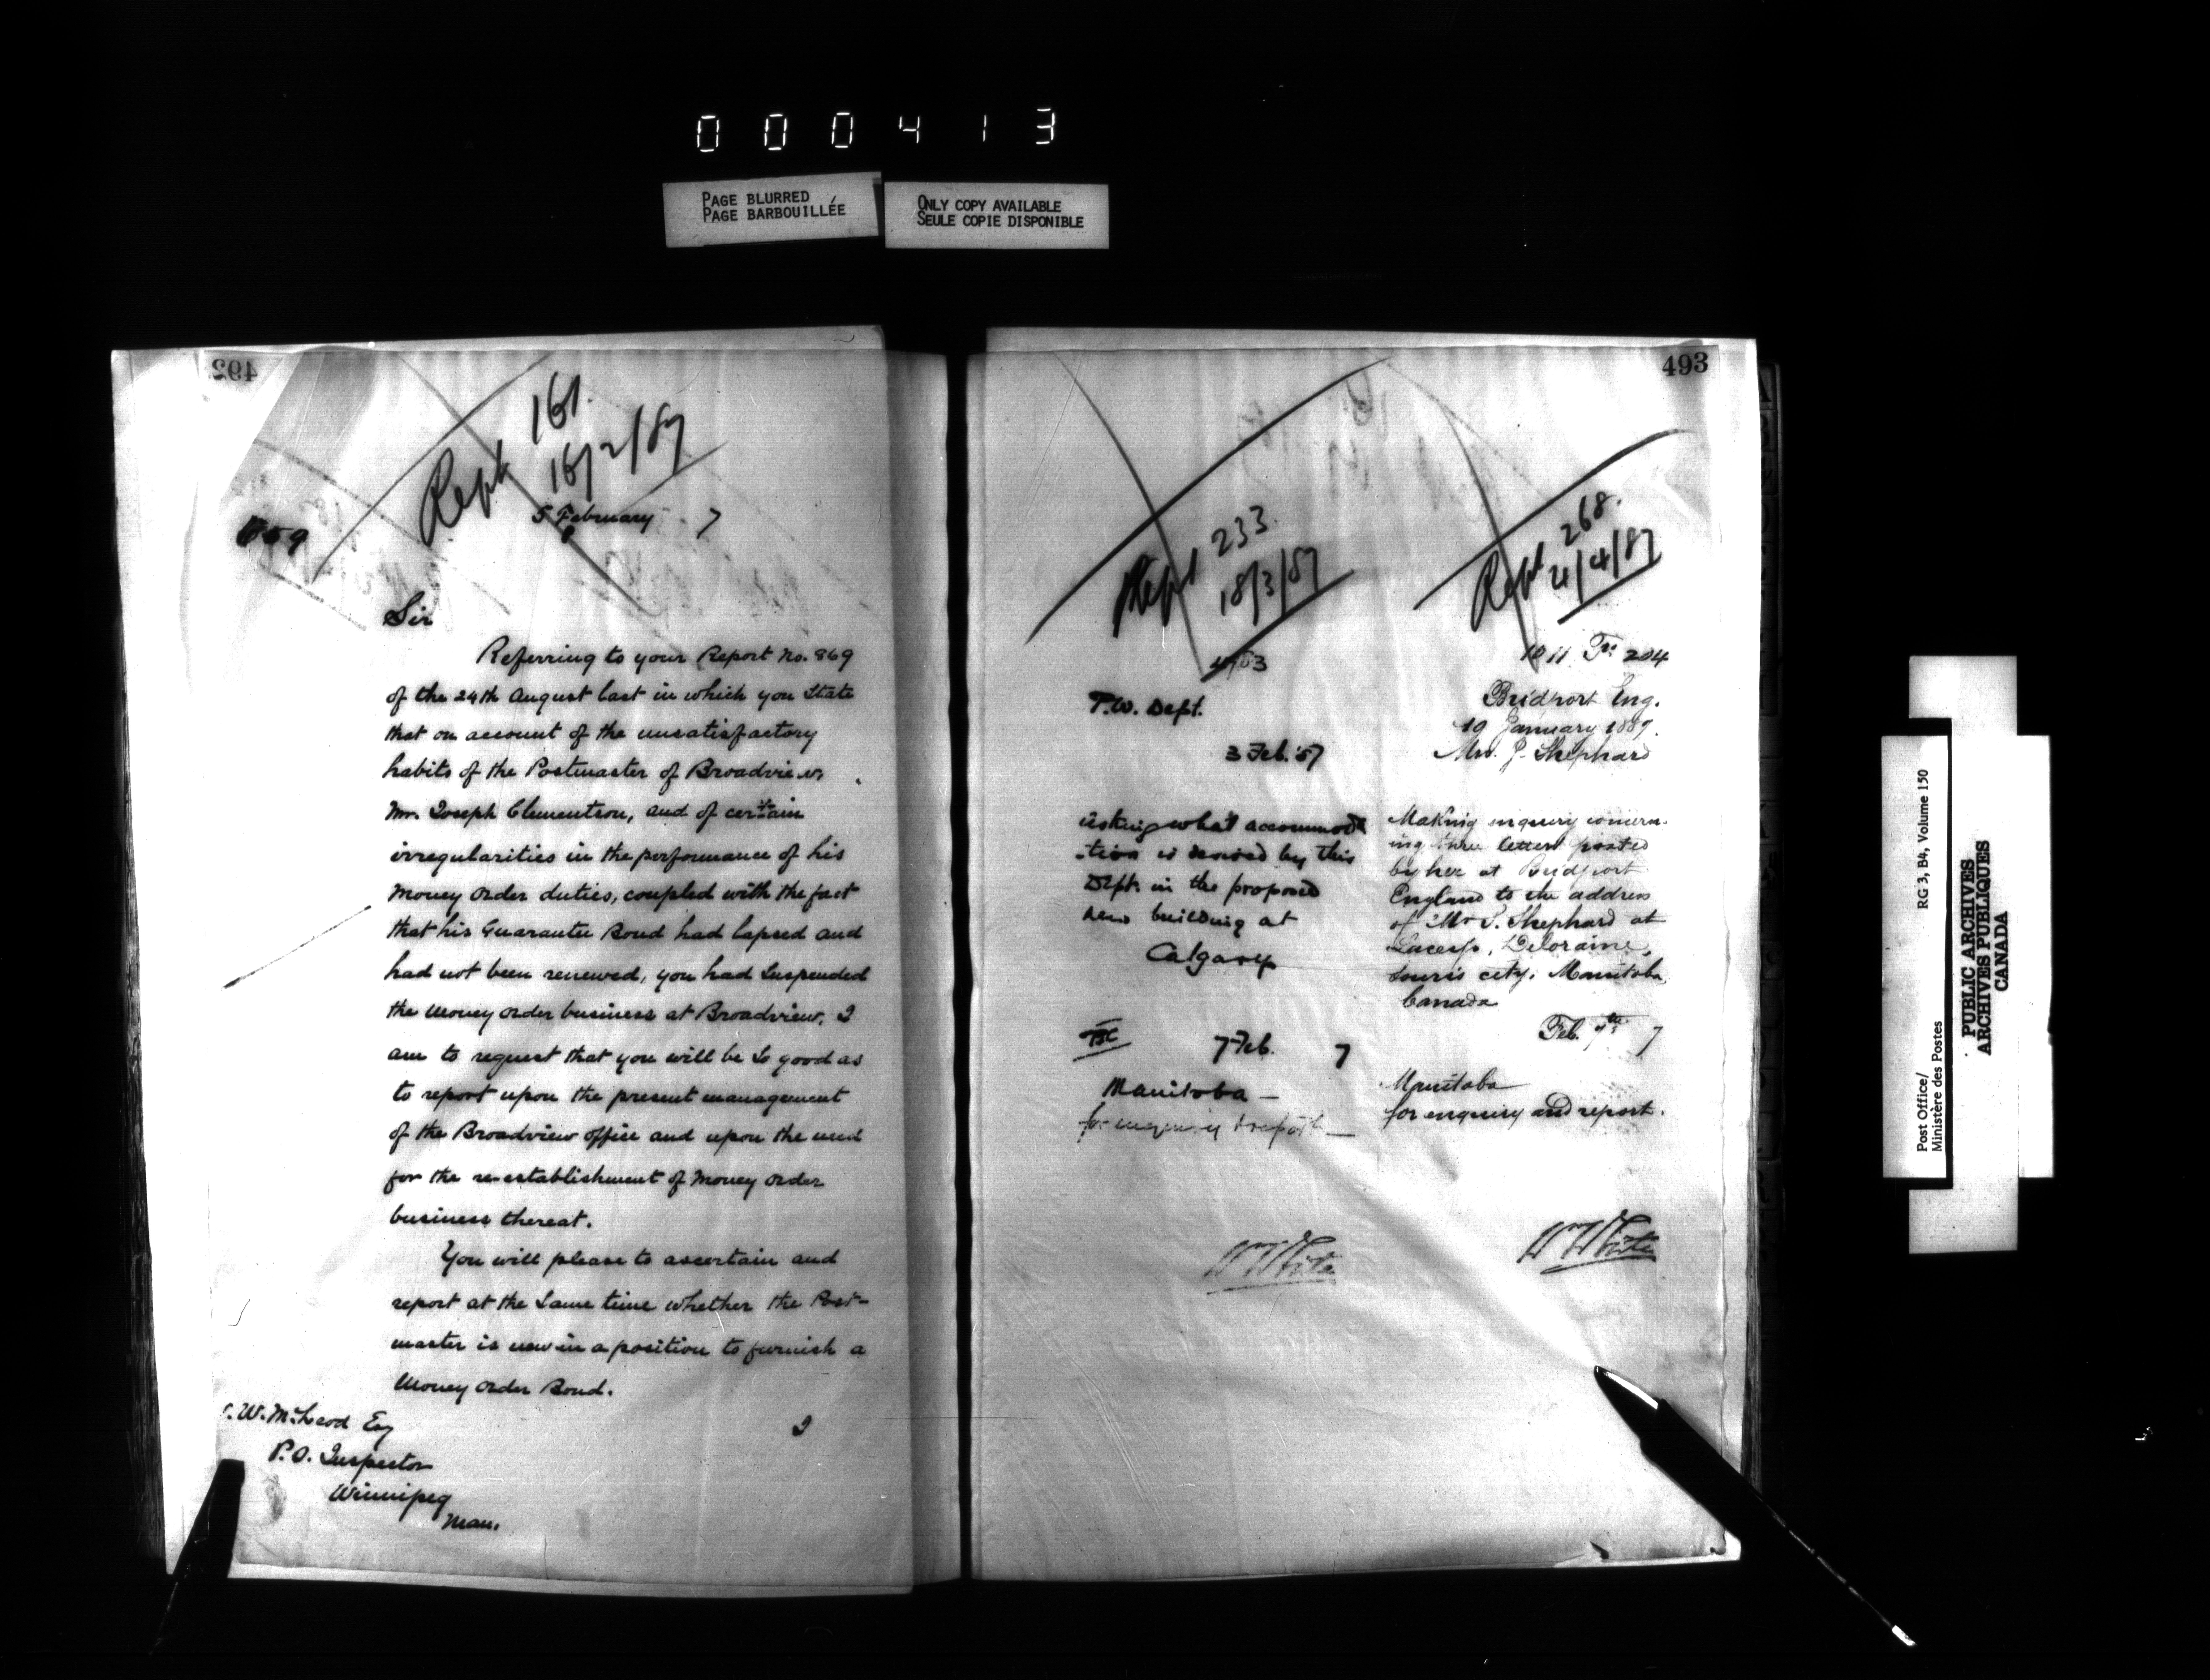 000413
PAGE BLURRED
PAGE BARBOUILLÉE
ONLY COPY AVAILABLE
SEULE COPIE DISPONIBLE
492
Rept 161.
16/2/87
5 February 7
Sir
Referring to your Report No. 869
of the 24th August last in which you State
that on account of the unsatisfactory
habits of the Postmaster of Broadview,
Mr. Joseph Clementson, and of certain
irregularities in the performance of his
Money Order duties, coupled with the fact
that his Guarantee Bond had lapsed and
had not been renewed, you had Suspended
the Money Order business at Broadview, I
am to request that you will be So good as
to report upon the present management
of the Broadview office and upon the need
for the re-establishment of Money Order
business thereat.
You will please to ascertain and
report at the Same time whether the Post-
master is now in a position to furnish a
Money Order Bond.
I
W. McLeod Esq
P.O. Inspector
Winnipeg
Man.
493
Rept 233.
18/3/87
P.W. Dept.
3 Feb. '87
asking what accommoda
-tion is desired by this
Dept. in the proposed
new building at
Calgary
7 Feb. 7
Manitoba —
for enquiry & report —
W White
Rept 268.
4/4/87
1011 204
Bridport Eng.
19 January 1887.
Mrs. J. Shephard
Making inquiry concern-
ing three letters posted
by her at Bridport
England to the address
of Mr S. Shephard at
Deloraine,
Souris city, Manitoba,
Canada
Feb. 7th 7
Manitoba
for enquiry and report.
W White
Post Office/
Ministère des Postes
RG 3, B4, Volume 150
PUBLIC ARCHIVES
ARCHIVES PUBLIQUES
CANADA